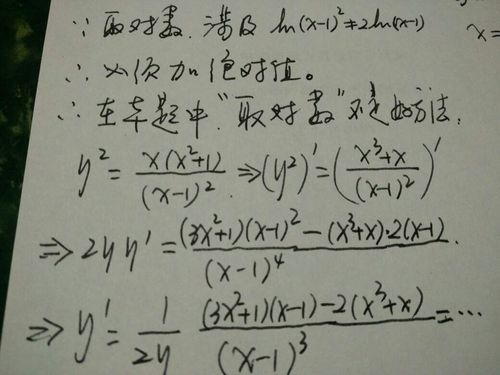 ∵ 取对数. 涉及 ln(x-1)²≠2ln(x-1) x=
∴ 必须加绝对值。
∴ 在本题中“取对数”不是好方法.
y² = x(x²+1)/(x-1)² ⇒ (y²)' = ((x³+x)/(x-1)²)'
⇒ 2yy' = ((3x²+1)(x-1)² - (x³+x)·2(x-1))/(x-1)⁴.
⇒ y' = 1/2y ((3x²+1)(x-1) - 2(x³+x))/(x-1)³ = …